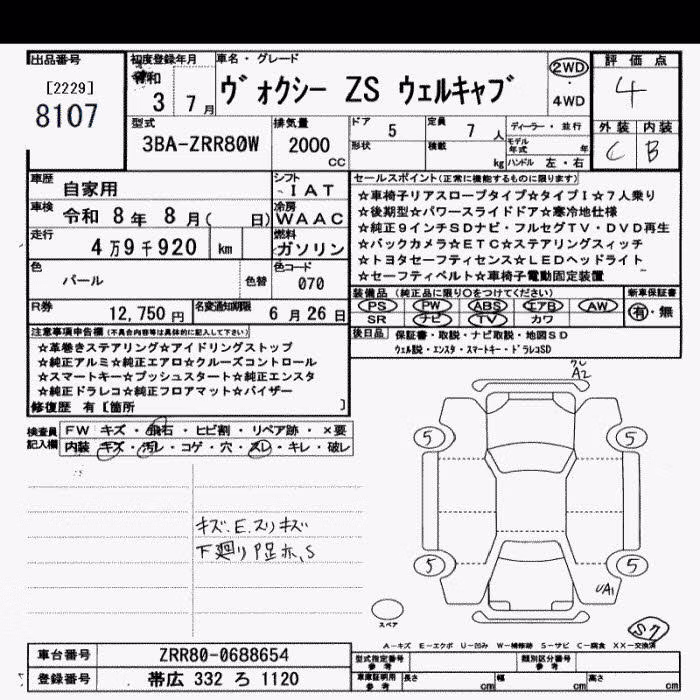 出品番号
[2229]
8107
初度登録年月
令和
3 7月
車名・グレード
ヴォクシー ZS ウェルキャブ
2WD
・
4WD
評価点
4
外装 内装
C B
型式
3BA-ZRR80W
排気量
2000
CC
ドア 5
形状
定員 7 人
積載 kg
ディーラー・並行
モデル年式 年
ハンドル 左・右
車歴 自家用
シフト
IAT
車検 令和 8年 8月( 日)
冷房
WAAC
走行
4万9千920 km
燃料
ガソリン
色
パール
色替
色コード
070
R券
12,750円
名変通知期限
6月26日
セールスポイント(正常に機能するものに限ります)
☆車椅子リアスロープタイプ☆タイプI☆7人乗り
☆後期型☆パワースライドドア☆寒冷地仕様
☆純正9インチSDナビ・フルセグTV・DVD再生
☆バックカメラ☆ETC☆ステアリングスィッチ
☆トヨタセーフティセンス☆LEDヘッドライト
☆セーフティベルト☆車椅子電動固定装置
装備品(純正品に限り○をつけてください)
PS PW ABS エアB AW
SR ナビ TV カワ
新車保証書
有・無
後日品 保証書・取説・ナビ取説・地図SD
ウェル説・エンスタ・スマートキー・ドラレコSD
注意事項申告欄(不具合内容等は具体的に記入して下さい)
☆革巻きステアリング☆アイドリングストップ
☆純正アルミ☆純正エアロ☆クルーズコントロール
☆スマートキー☆プッシュスタート☆純正エンスタ
☆純正ドラレコ☆純正フロアマット☆バイザー
修復歴 有[箇所 ]
検査員記入欄
FW キズ・飛石・ヒビ割・リペア跡・×要
内装 キズ・汚レ・コゲ・穴・スレ・キレ・破レ
キズ、E、スリキズ
下廻りP足ホ、S
A2
5 5
5 5
UA1
スペア
S7
A-キズ E-エクボ U-凹み W-補修跡 S-サビ C-腐食 XX-交換済
車台番号 ZRR80-0688654
登録番号 帯広 332 ろ 1120
型式指定番号
参考
類別区分番号
参考
車庫証明用
参考
長さ cm 幅 cm 高さ cm